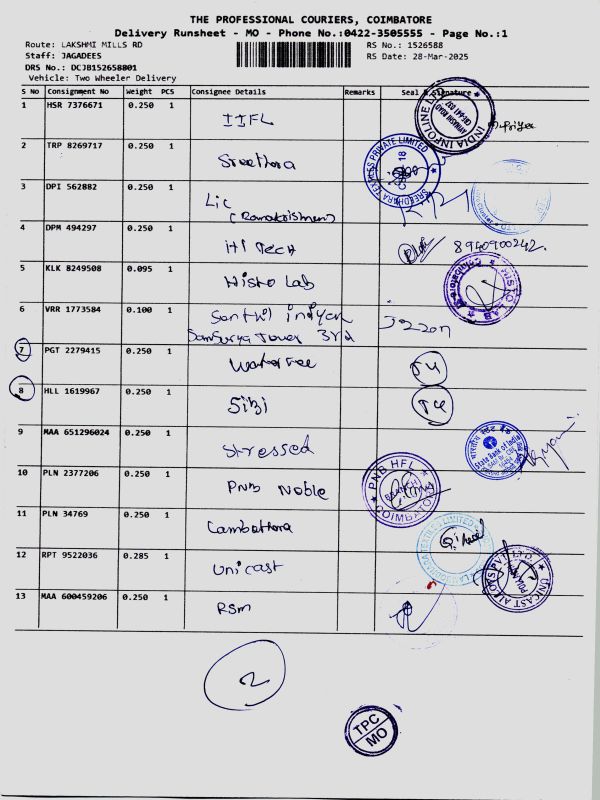 THE PROFESSIONAL COURIERS, COIMBATORE
Delivery Runsheet - MO - Phone No.:0422-3505555 - Page No.:1
Route: LAKSHMI MILLS RD RS No.: 1526588
Staff: JAGADEES RS Date: 28-Mar-2025
DRS No.: DCJB152658801
Vehicle: Two Wheeler Delivery
S No Consignment No Weight PCS Consignee Details Remarks Seal & Signature
1 HSR 7376671 0.250 1 IIFL
INDIA INFOLINE
2 TRP 8269717 0.250 1
SREEDHARA TEXLESS PRIVATE LIMITED
CBE - 18
3 DPI 562882 0.250 1 Lic
4 DPM 494297 0.250 1 HI Tech 8940900242.
5 KLK 8249508 0.095 1 Histo Lab
HISTO LAB
Coimbatore
6 VRR 1773584 0.100 1
Tower 3rd
7 PGT 2279415 0.250 1
8 HLL 1619967 0.250 1
9 MAA 651296024 0.250 1 Stressed
State Bank of India
10 PLN 2377206 0.250 1 PNB Noble
PNB HFL
BRANCH
COIMBATORE
11 PLN 34769 0.250 1
12 RPT 9522036 0.285 1 Unicast
UNICAST ALLOYS PVT LTD
13 MAA 600459206 0.250 1 RSM
2
TPC
MO